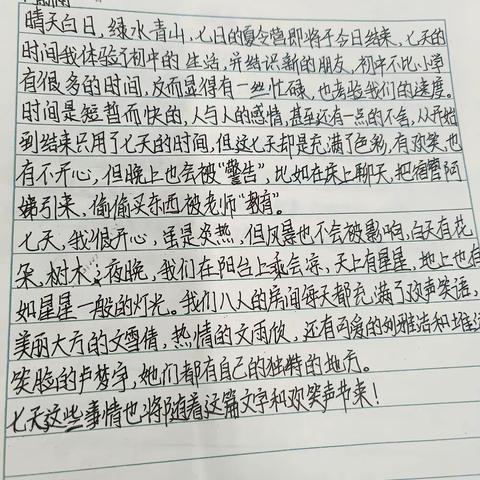 晴天白日,绿水青山,七日的夏令营即将于今日结束,七天的
时间我体验了初中的生活,并结识新的朋友,初中不比小学
有很多的时间,反而显得有一丝忙碌,也考验我们的速度。
时间是短暂而快的,人与人的感情,甚至还有一点的不舍,从开始
到结束只用了七天的时间,但这七天却是充满了色彩,有欢笑,也
有不开心,但晚上也会被“警告”,比如在床上聊天,把宿管阿
姨引来,偷偷买东西被老师“教育”。
七天,我很开心,虽是炎热,但风景也不会被影响,白天有花
朵,树木;夜晚,我们在阳台上乘会凉,天上有星星,地上也有
如星星一般的灯光。我们八人的房间每天都充满了欢声笑语,
美丽大方的文雪倩,热情的文雨欣,还有可爱的刘雅洁和堆
笑脸的卢梦宇,她们都有自己的独特的地方。
七天这些事情也将随着这篇文字和欢笑声结束!